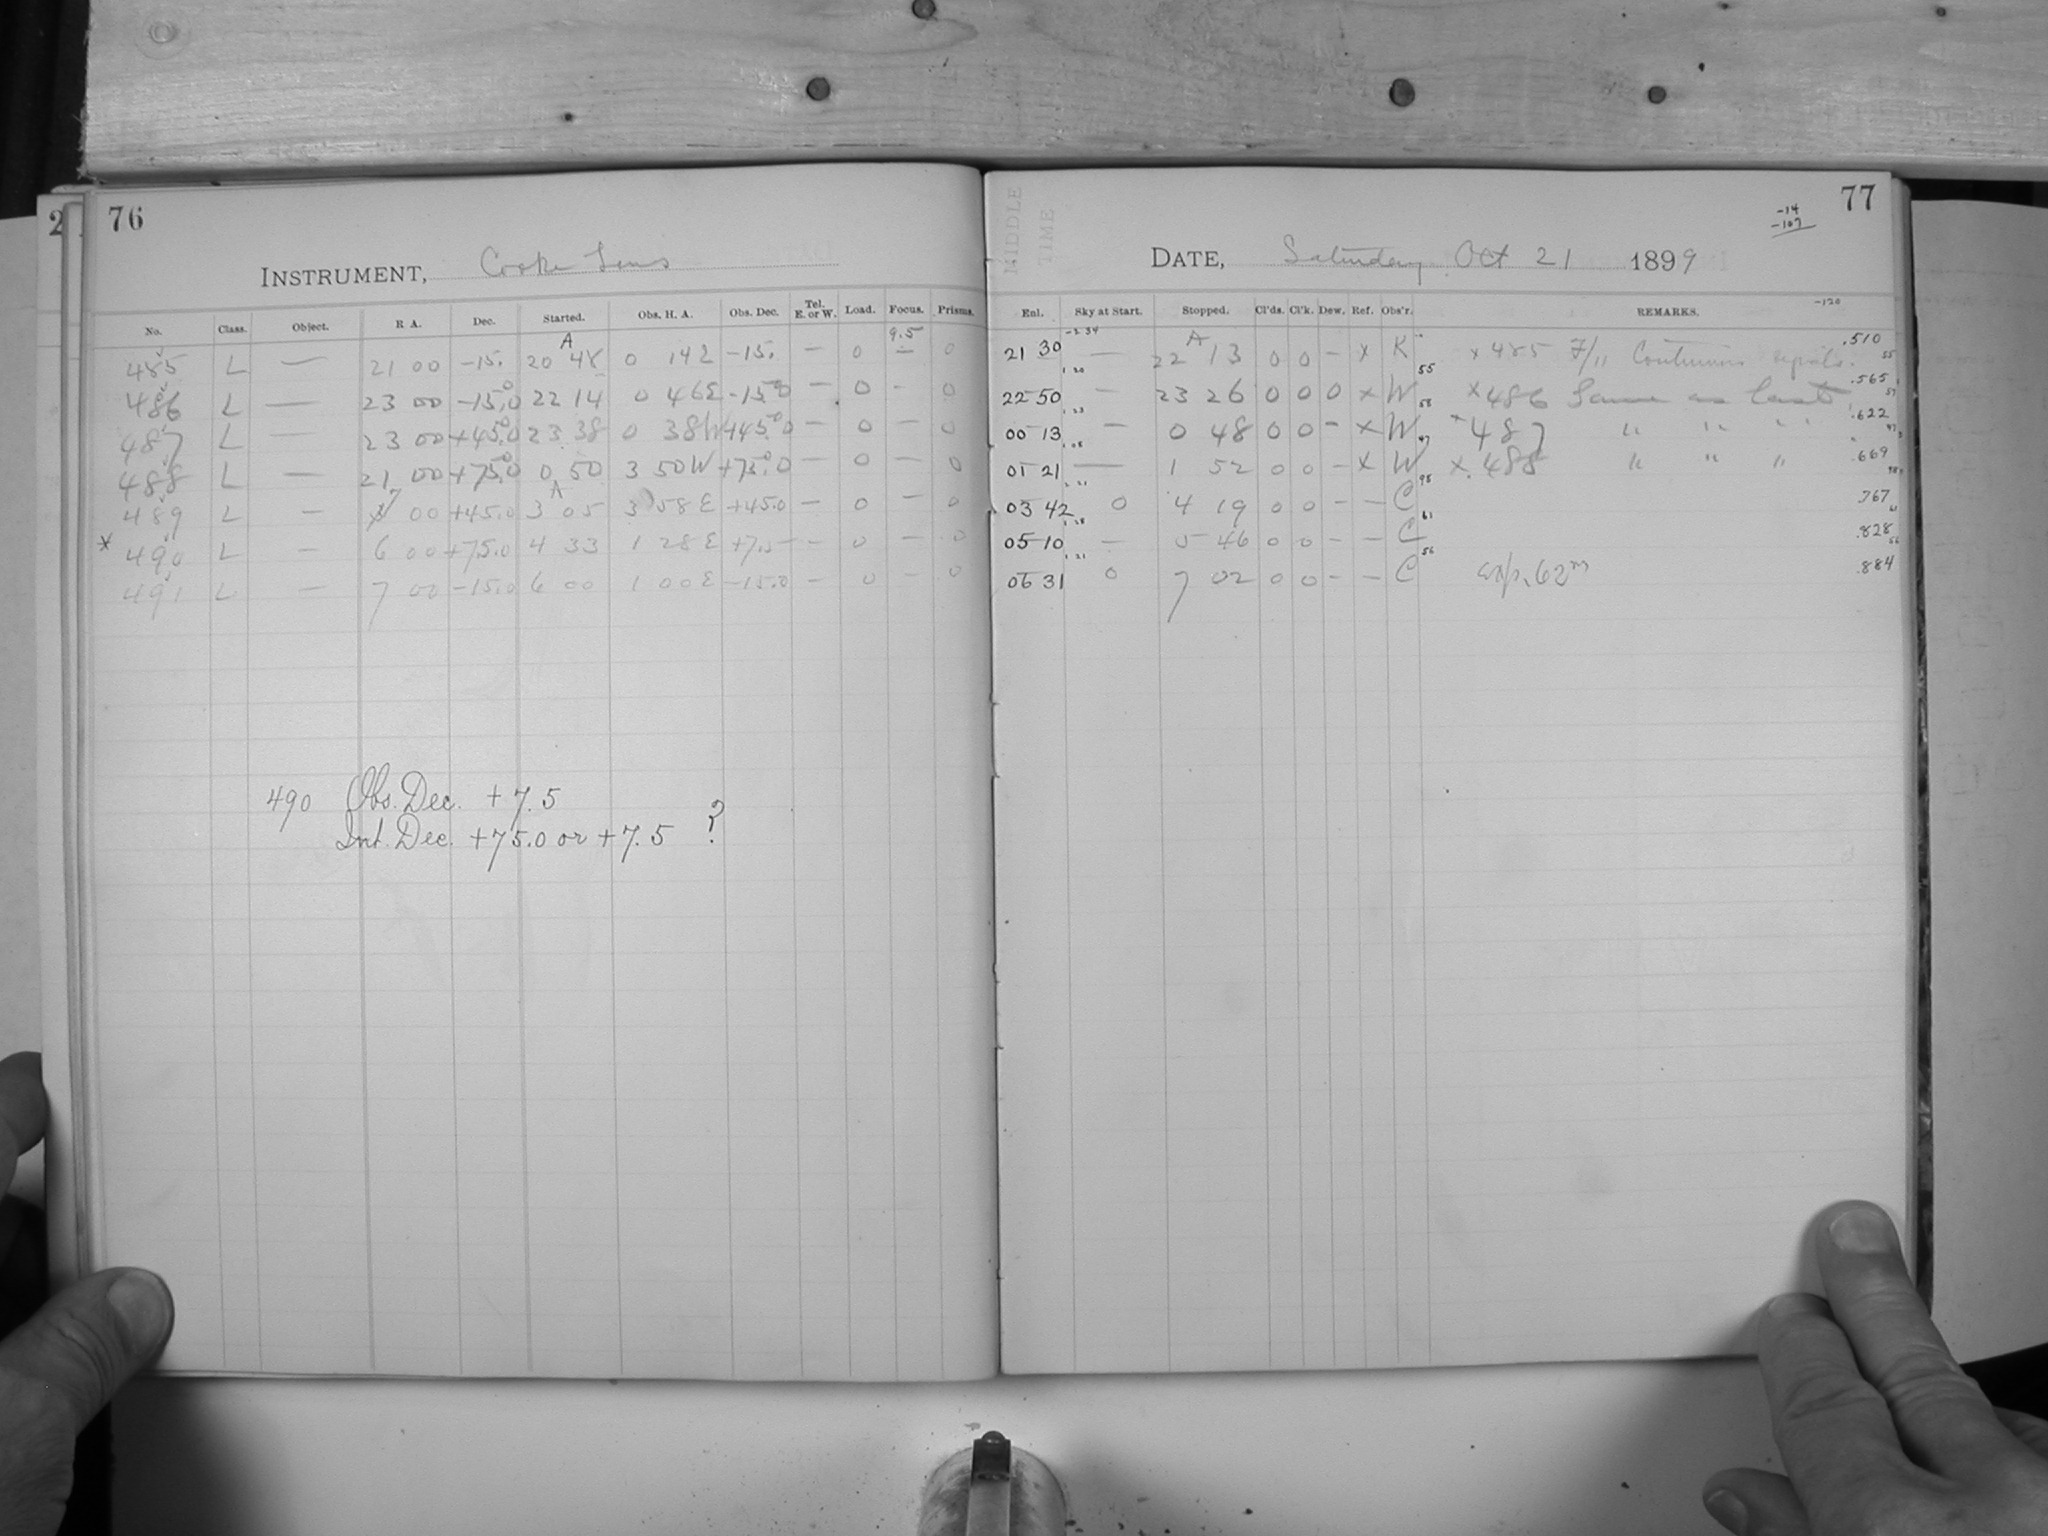 76
INSTRUMENT, Cooke Lens
No. Class. Object. R A. Dec. Started. Obs. H. A. Obs. Dec. Tel. E. or W. Load. Focus. Prisms.
9.5
485 L — 21 00 -15. A 20 48 0 14 E -15. — 0 — 0
486 L — 23 00 -15.0 22 14 0 46 E -15.0 — 0 - 0
487 L — 23 00 +45.0 23 38 0 38 W +45.0 — 0 - 0
488 L — 21 00 +75.0 0 50 3 50 W +75.0 — 0 — 0
489 L — 7 00 +45.0 A 3 05 3 58 E +45.0 — 0 — 0
* 490 L — 6 00 +75.0 4 33 1 28 E +7.5 — 0 — 0
491 L — 7 00 -15.0 6 00 1 00 E -15.0 — 0 — 0
490 Obs. Dec. + 7.5
Int. Dec. +75.0 or +7.5 ?
77
-14
-107
MIDDLE TIME
DATE, Saturday Oct 21 1899
-120
Enl. Sky at Start. Stopped. Cl'ds. Cl'k. Dew. Ref. Obs'r. REMARKS.
21 30 — A 22 13 0 0 — x K x 485 F/11 Continuous .510
55
22 50 — 23 26 0 0 0 x W x 486 Same as last .565
00 13 — 0 48 0 0 - x W x 487 " " " .622
01 21 — 1 52 0 0 - x W x 488 " " " .669
03 42 0 4 19 0 0 - — C .767
61
05 10 — 5 46 0 0 - — C .828
56
06 31 0 7 02 0 0 - — C exp. 62m .884